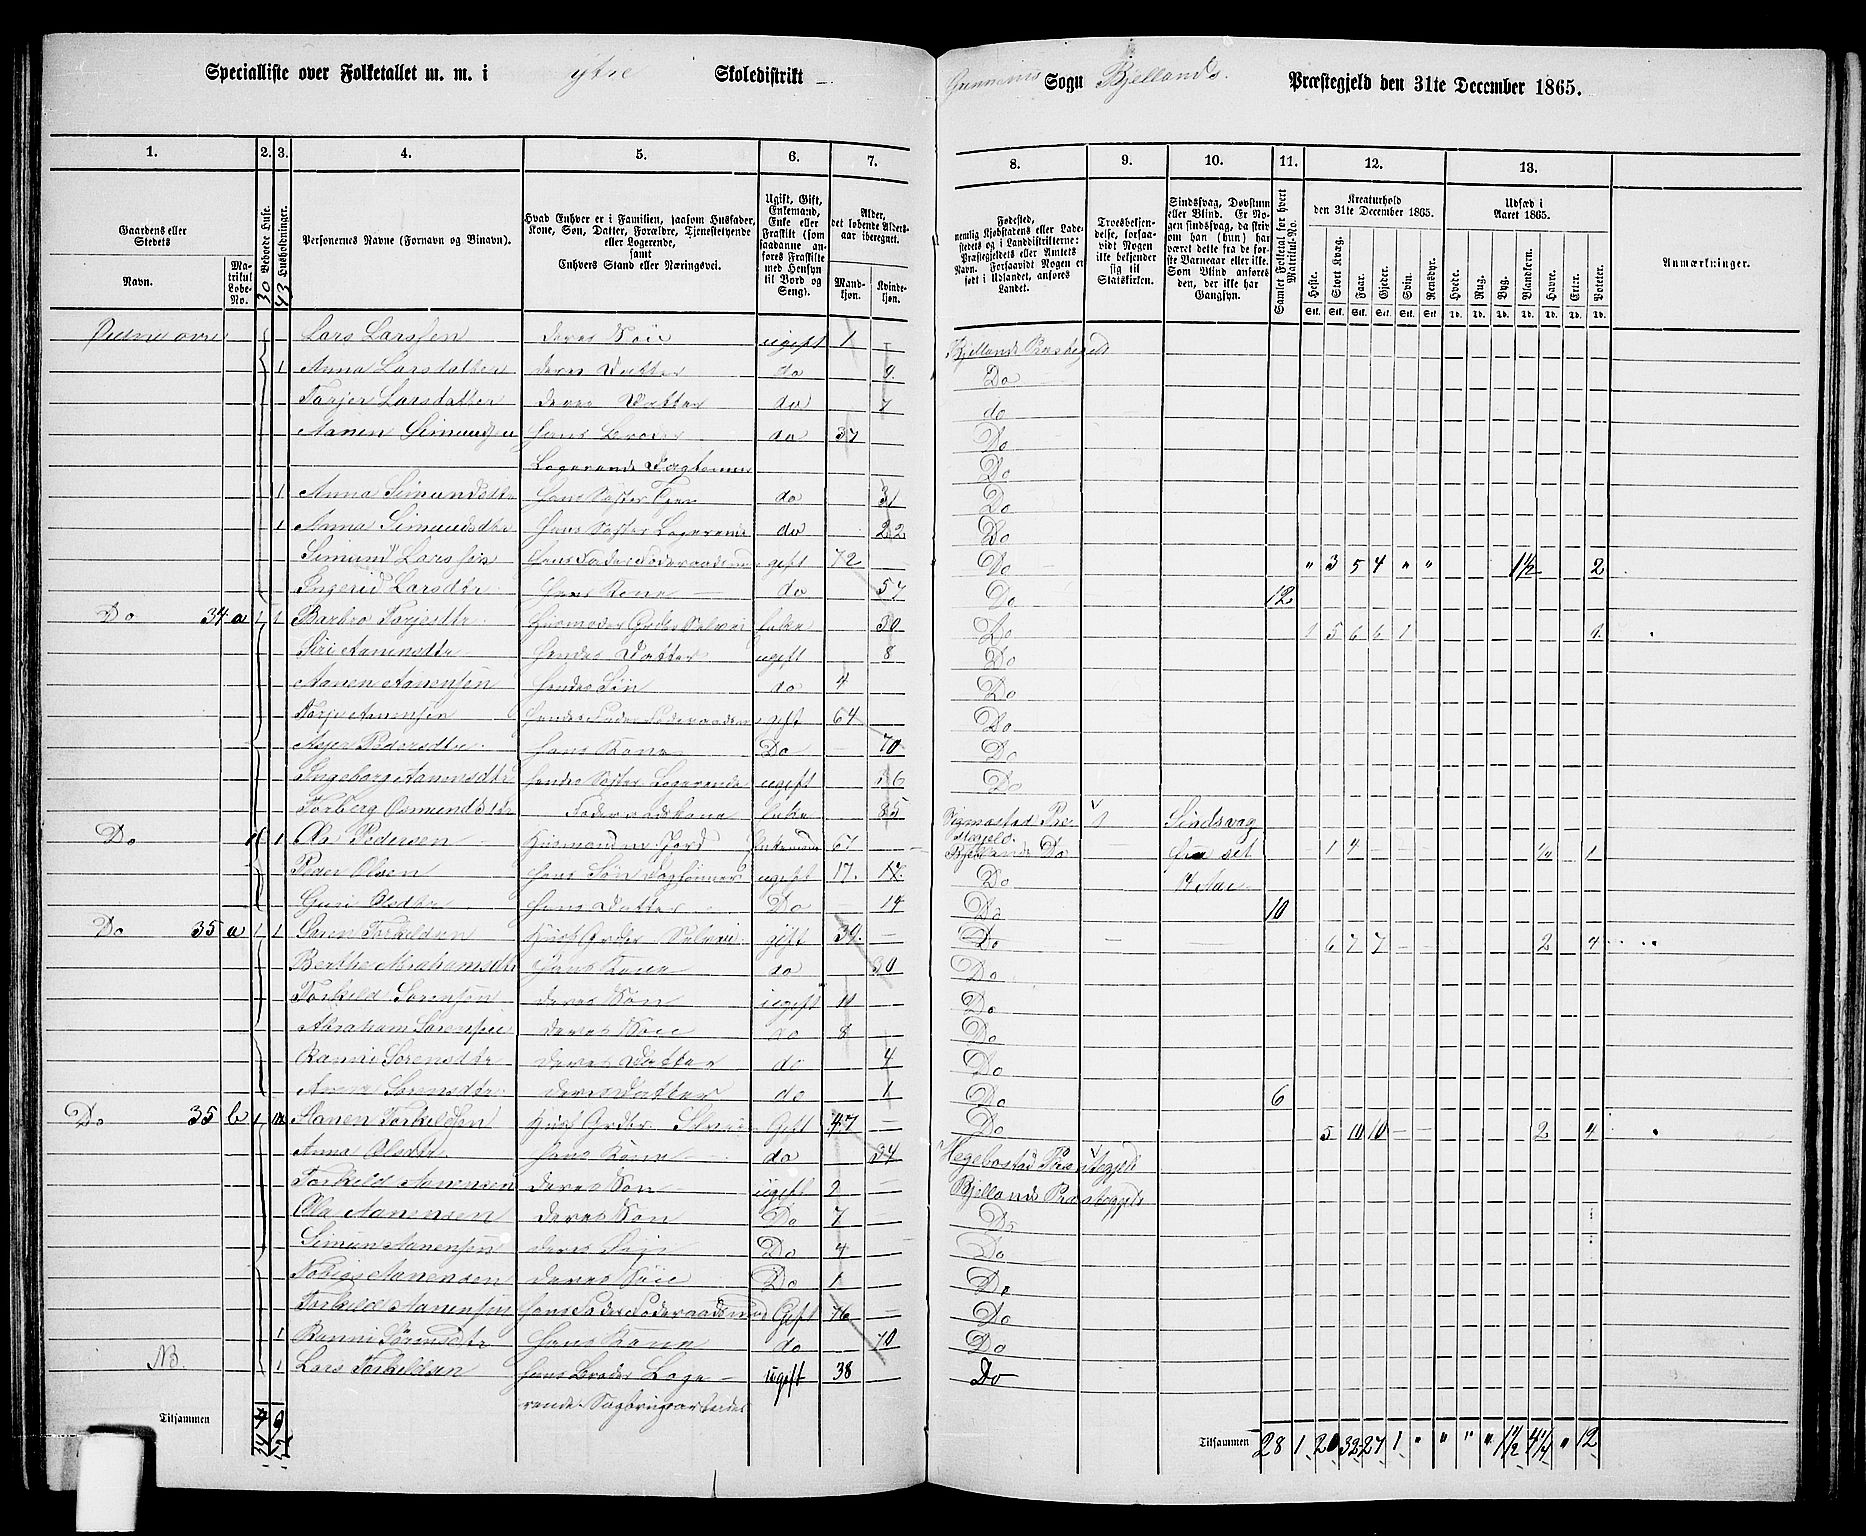 Specialliste over Folketallet m. m. i ytre Skoledistrikt
Sogn Bjellands Præstegjeld den 31te December 1865.
1. 2. 3. 4. 5. 6. 7. 8. 9. 10. 11. 12. 13.
Gaardens eller Stedets
Navn.
Matrikul Løbe-No.
Beboede Huse.
Husholdninger.
Personernes Navne (Fornavn og Binavn).
Hvad Enhver er i Familien, saasom Husfader, Kone, Søn, Datter, Forældre, Tjenestetyende eller Logerende, samt Enhvers Stand eller Næringsvei.
Ugift, Gift, Enkemand, Enke eller Fraskilt (som saadanne anføres Fraskilte med Hensyn til Bord og Seng).
Alder, det løbende Aldersaar iberegnet.
Mandkjøn.
Kvindekjøn.
Fødested, nemlig Kjøbstadens eller Ladestedets og i Landdistrikterne: Præstegjeldets eller Amtets Navn. Forsaavidt Nogen er født i Udlandet, anføres Landet.
Troesbekjendelse, forsaavidt Nogen ikke bekjender sig til Statskirken.
Sindssvag, Døvstum eller Blind. Er Nogen sindssvag, da skriv om han (hun) har været dette fra de første Barneaar eller ikke. Som Blind anføres den, der ikke har Gangsyn.
Samlet Folketal for hvert Matrikul-No.
Kreaturhold den 31te December 1865.
Heste. Stort Kvæg. Faar. Gjeder. Svin. Rensdyr.
Udsæd i Aaret 1865.
Hvede. Rug. Byg. Blandkorn. Havre. Erter. Poteter.
Anmærkninger.
Lars Larssen deres Søn ugift 1 Bjellands Præstegjeld
1 Anna Larsdatter deres Datter do 9 Do
Torjer Larsdatter deres Datter do 7 do
Aanen Simundsen hans Broder do 37 Do
Logerende Dagleiner Do
1 Anna Simundsdtr hans Søster do 31 Do
1 Anna Simundsdtr hans Søster Logerende do 22 Do
Simund Larssen hans Fader Føderaadsmd gift 72 Do " 3 5 4 " " 1½ 2
Ingerid Larsdtr hans Kone do 57 Do 12
Do 34 a 1 1 Barbro Torjesdtr Husmoder Grdbr Selvei Enke 30 Do 1 5 6 6 1
Siri Aanensdtr hendes Datter ugift 8 Do
Aanen Aanensen hendes Søn do 4 Do
Torje Aanensen hendes Fader Føderaadsm gift 64 Do
Pedersdtr hans Kone Do 70 Do
Ingeborg Aanensdtr hendes Søster Logerende ugift Do
Torberg Osmundsdtr Føderaadskone Enke 85
Do 1 Ole Pedersen Husmand m Jord Enkemand 67 Bjellands Do Sindsvag fra sit 14 Aar 1 4 1
Peder Olsen hans Søn Dagleiner ugift 17. Do
Guri Olsdtr hans Datter Do 14 Do 10
Do 35 a 1 1 Søren Torkeldsen Husf Grdbr Selvei gift 39 Do 6 7 7 2 4
Berthe Abrahamsdtr hans Kone do 30 Do
Torkeld Sørensen deres Søn ugift 11 Do
Abraham Sørensen deres Søn do 8 Do
Ranni Sorensdtr deres Datter do 4 Do
Anna Sørensdtr deres Datter do 1 Do 6
Do 35 b 1 Aanen Torkeldsen Husf Grdbr Selvei Gift 47 Do 5 10 10 2 4
Anna Olsdtr hans Kone do 34 Hegebostad Præstegjeld
Torkeld Aanensen deres Søn ugift Bjellands Præstegjeld
Ola Aanensen deres Søn Do 7 Do
Simun Aanensen deres Søn Do 4 Do
Tobias Aanensen deres Søn Do 1 Do
Torkeld Aanensen hans Fader Føderaadsmand Gift 76 Do
1 Ranni Sørensdtr hans Kone do 70 Do
NB. 1 Lars Torkeldsen hans Broder Loge- ugift 38 Do
rende Sagbrugsarbeider
Tilsammen
Tilsammen 28 1 20 32 27 1 " " " " 1½ 4¼ " 12